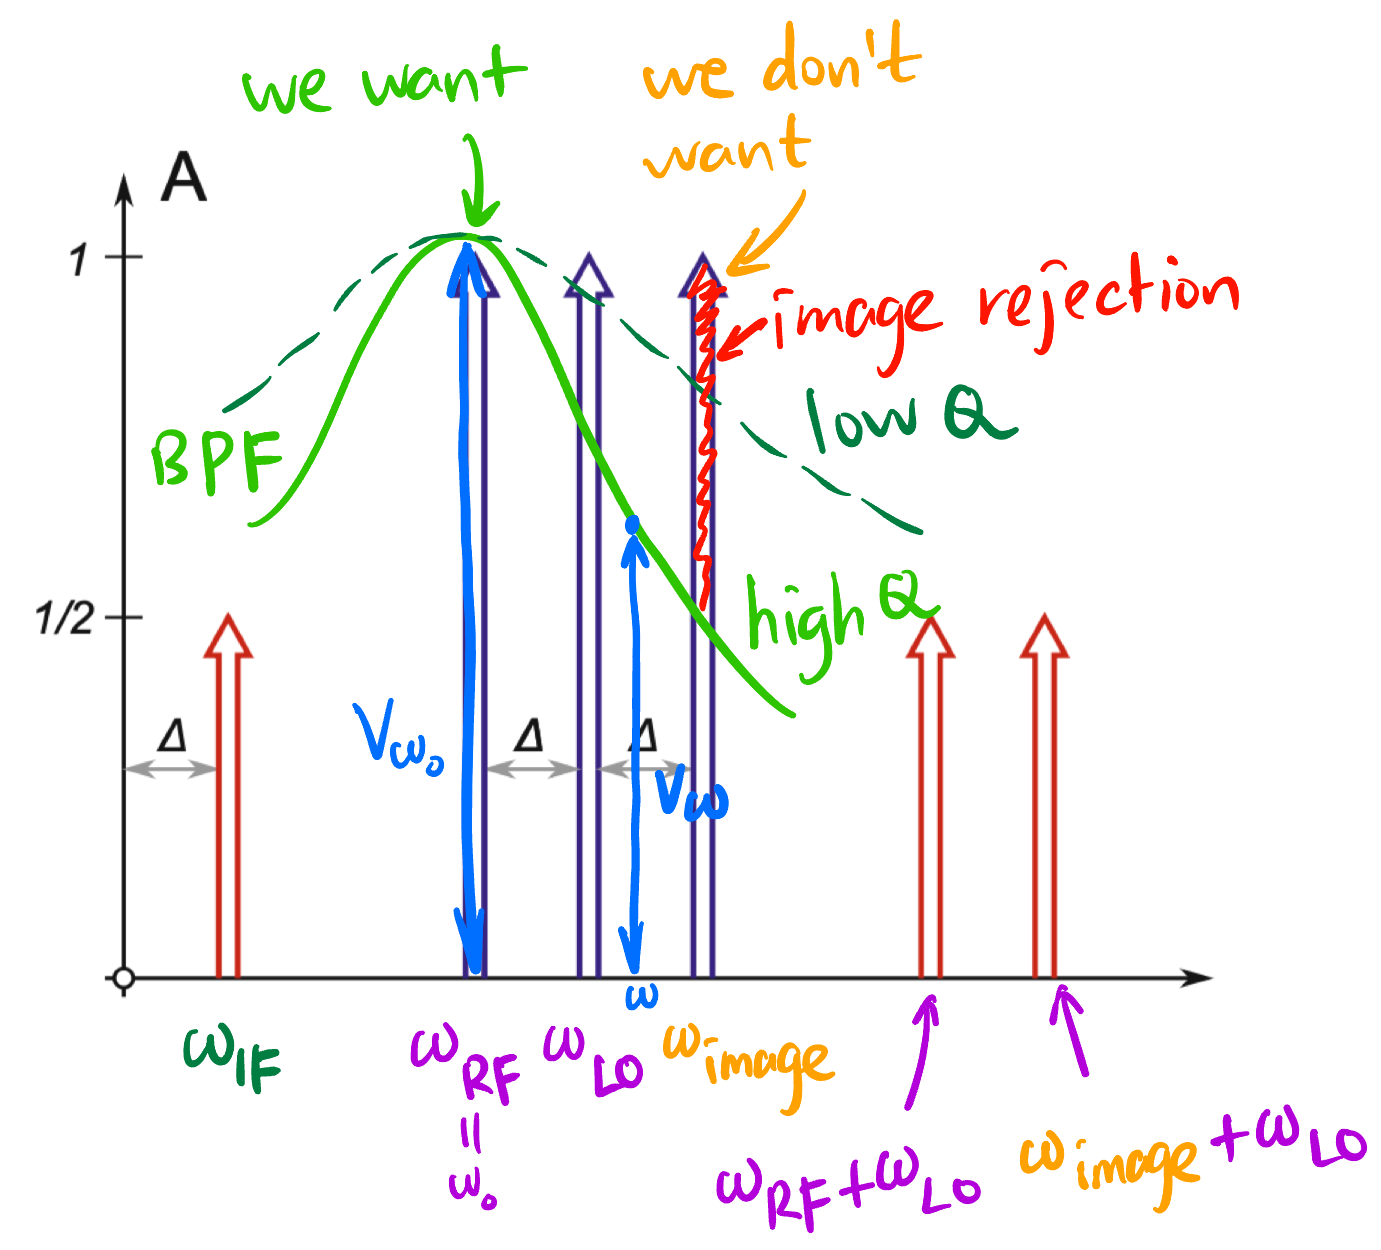 we want
we don't
want
A
1
image rejection
low Q
BPF
1/2
high Q
Vω₀
Δ
Δ
Δ
Vω
ω
ω_IF
ω_RF
ω_LO
ω_image
=
ω₀
ω_RF+ω_LO
ω_image+ω_LO